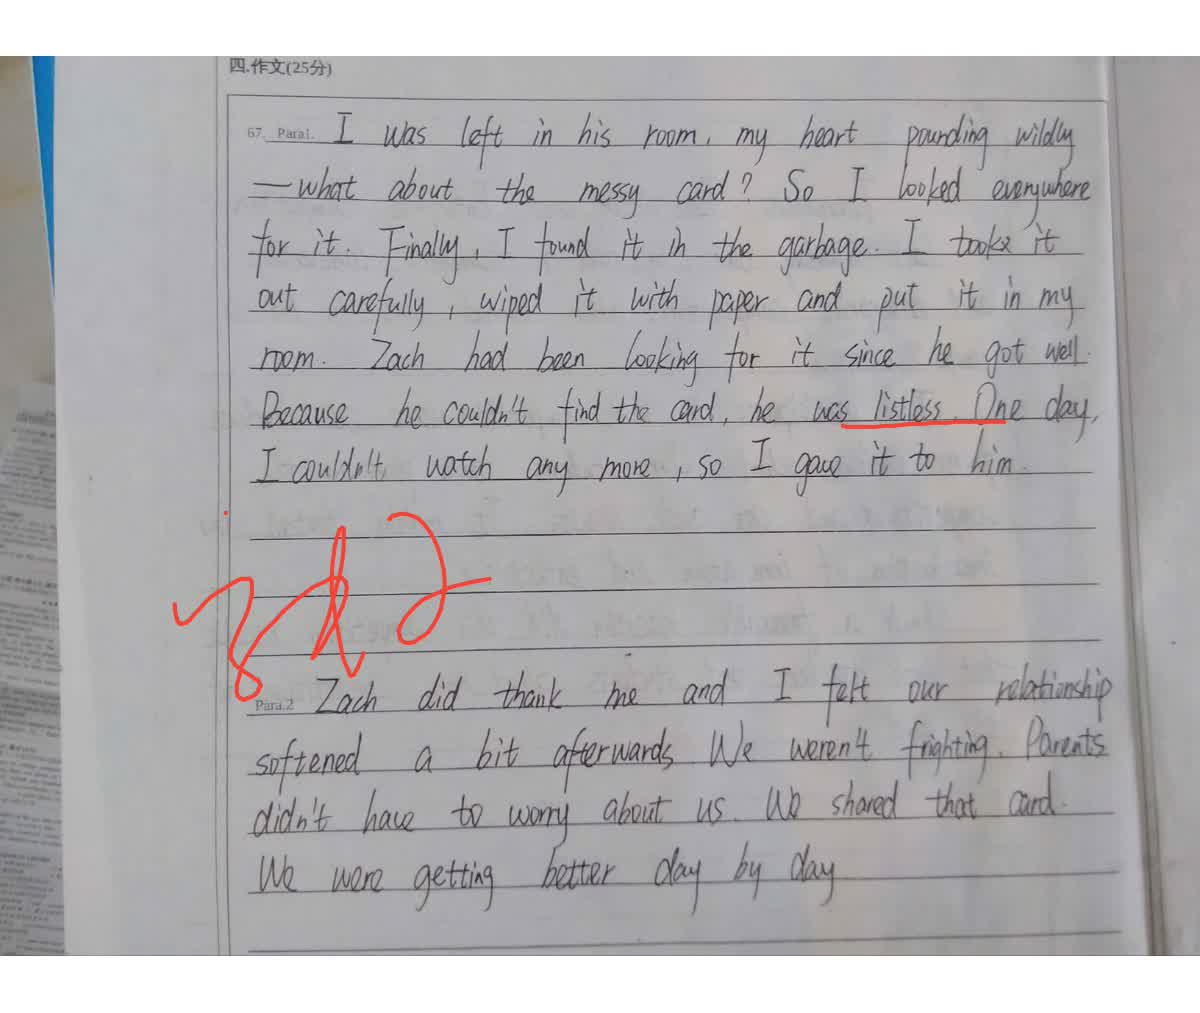 四.作文(25分)
67. Para1. I was left in his room, my heart pounding wildly
—what about the messy card? So I looked everywhere
for it. Finally, I found it in the garbage. I took it
out carefully, wiped it with paper and put it in my
room. Zach had been looking for it since he got well.
Because he couldn't find the card, he was listless. One day,
I couldn't watch any more, so I gave it to him.
Para.2 Zach did thank me and I felt our relationship
softened a bit afterwards. We weren't frighting. Parents
didn't have to worry about us. We shared that card.
We were getting better day by day